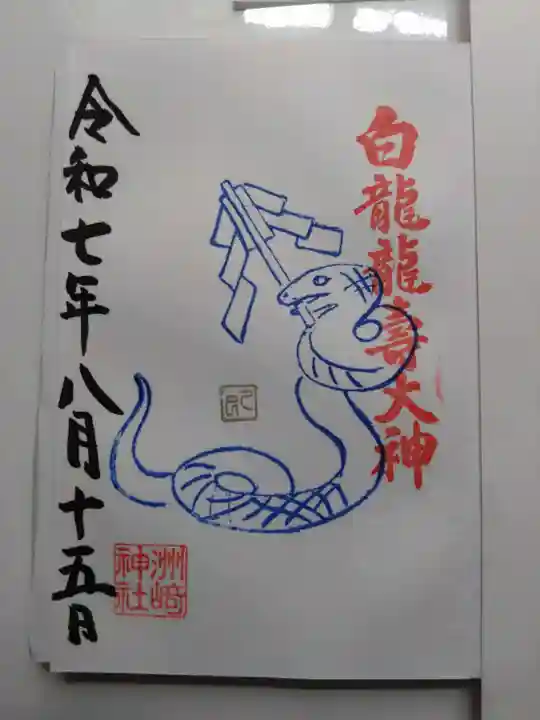 白龍龍壽大神
令和七年八月十五日
洲崎
神社